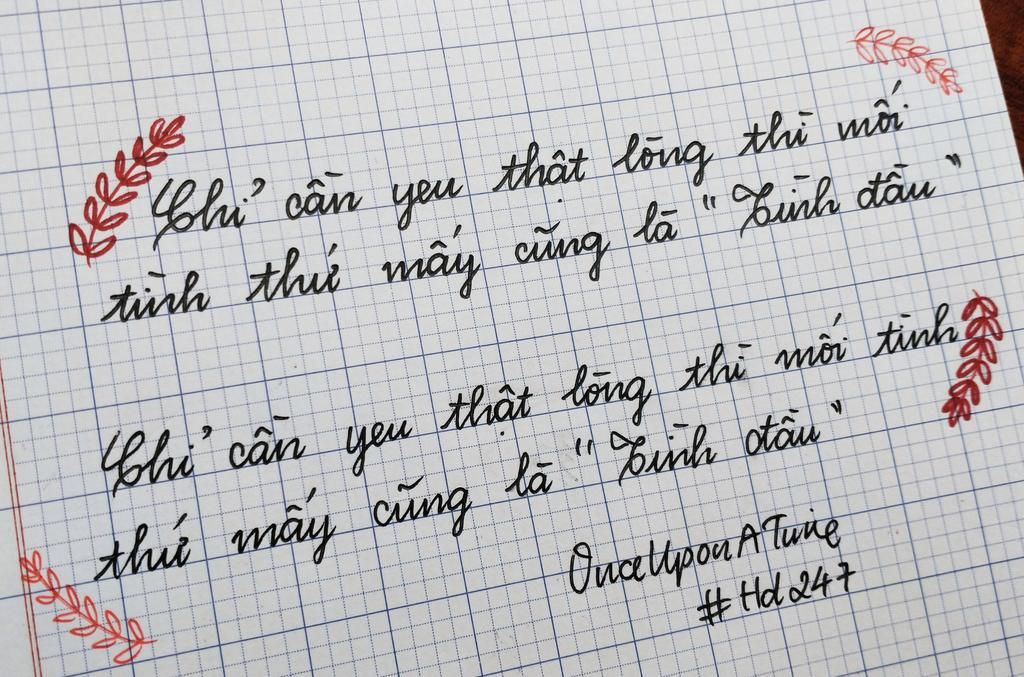 Chỉ cần yêu thật lòng thì mối
tình thứ mấy cũng là "Tình đầu"
Chỉ cần yêu thật lòng thì mối tình
thứ mấy cũng là "Tình đầu"
OnceUponATime
#Hd247